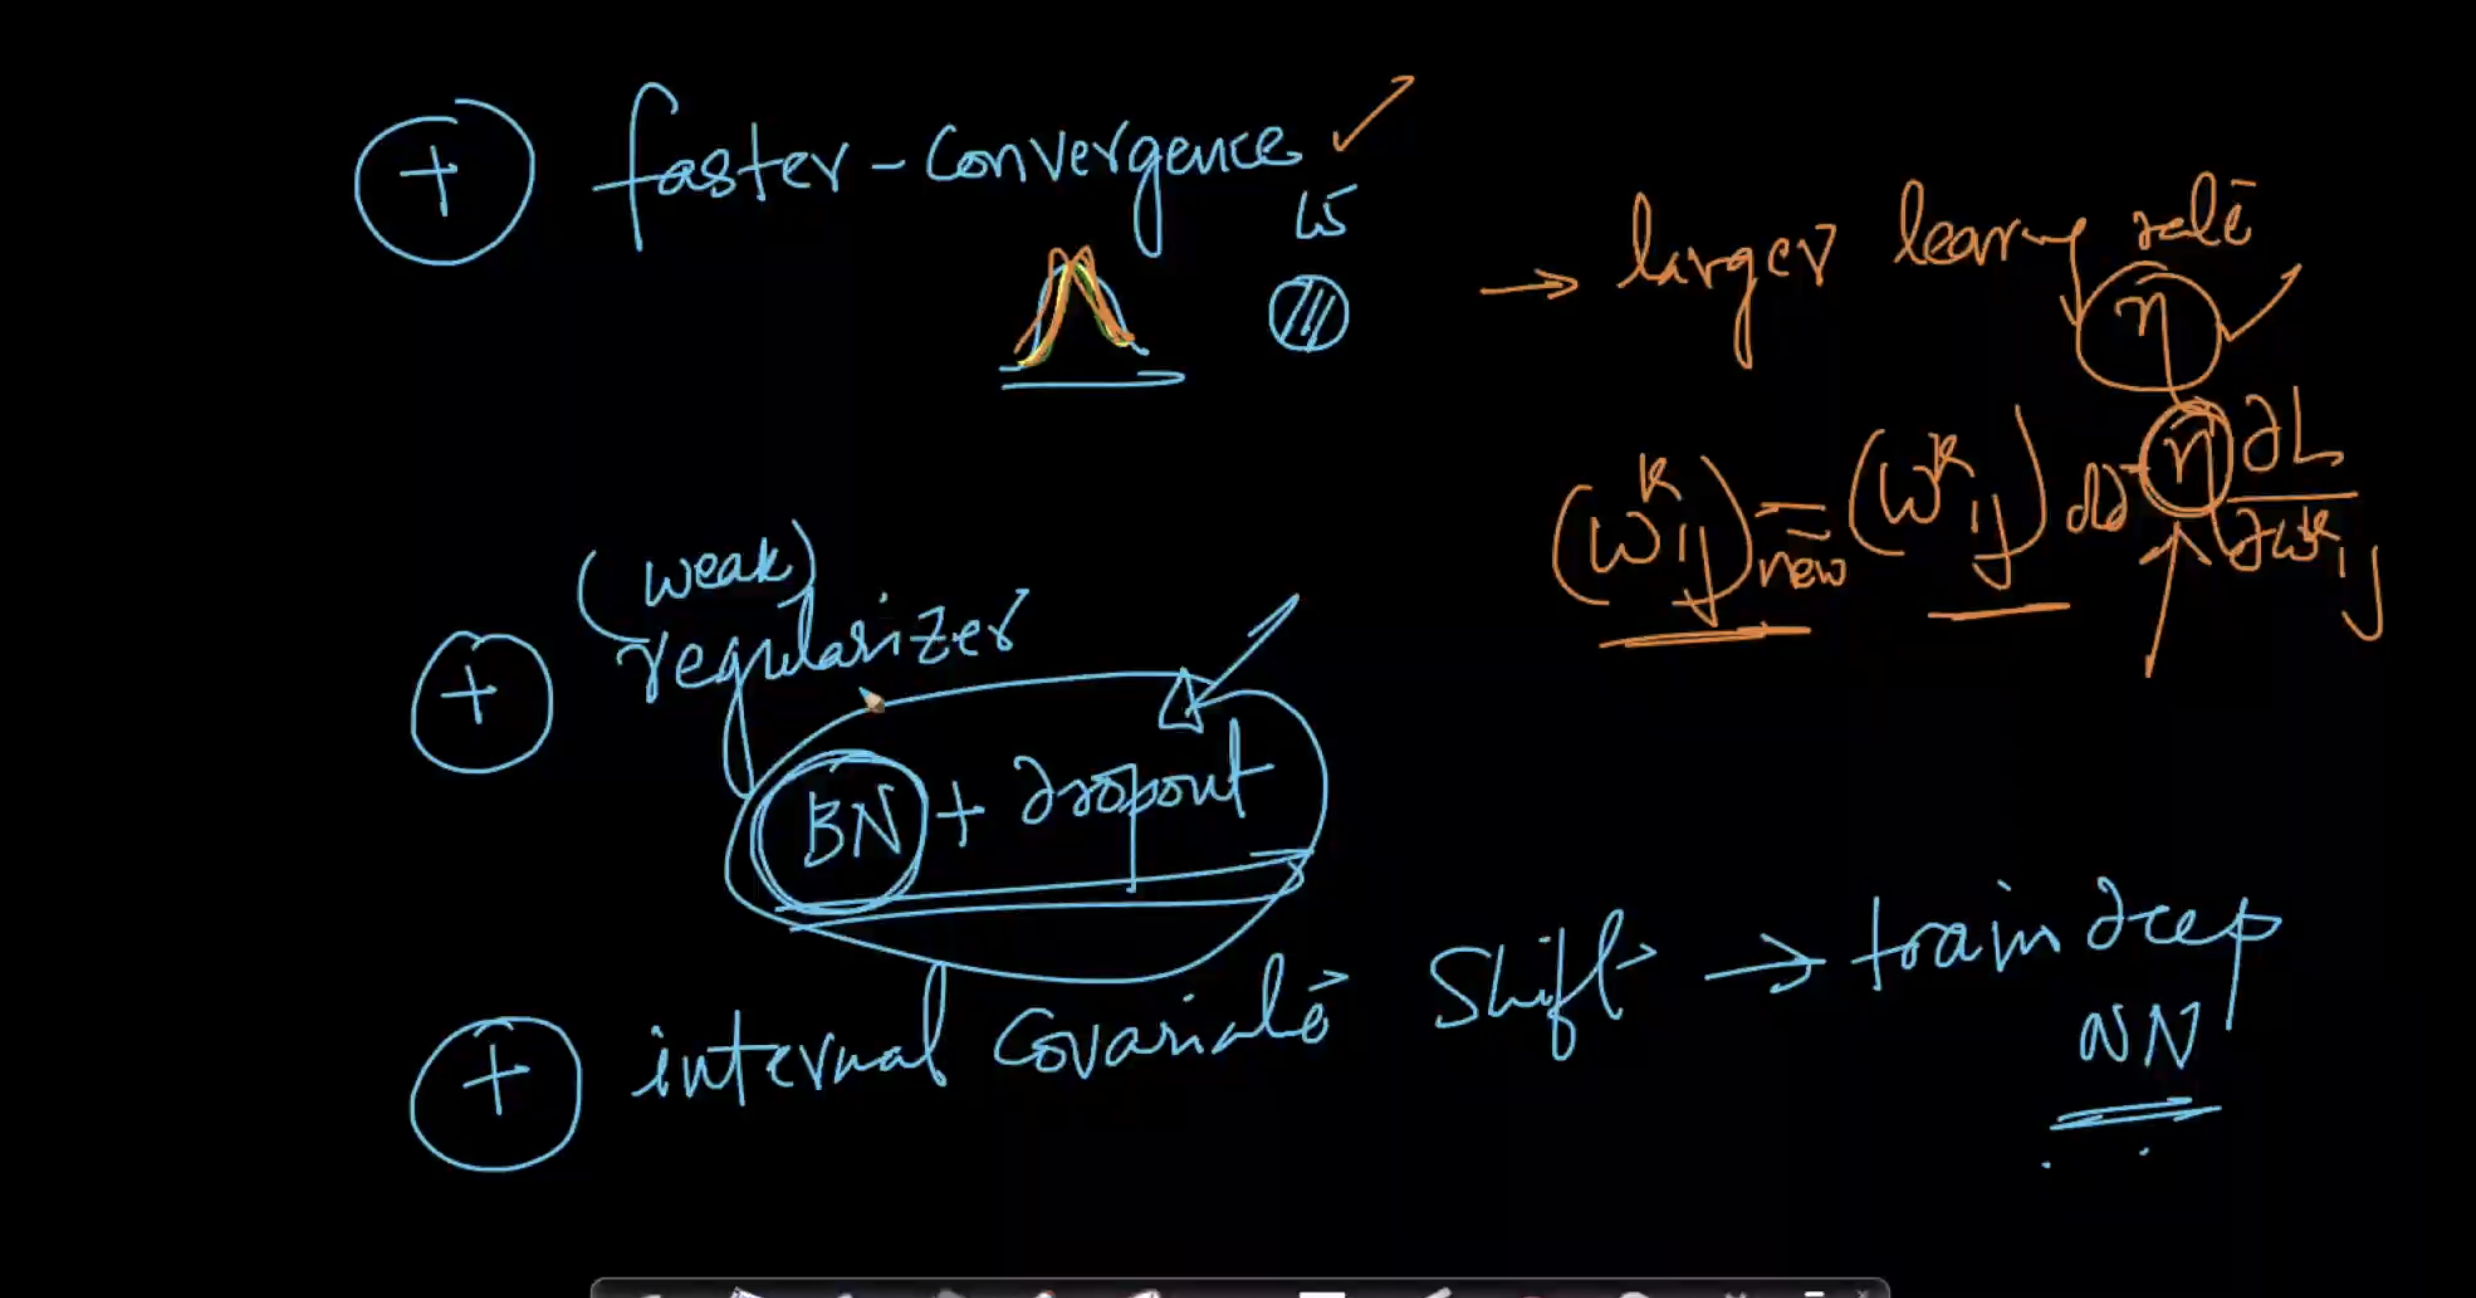 + faster-convergence
L5
→ larger learning rate
η
(W^k_ij)_new = (W^k_ij)_old - η ∂L/∂w^k_ij
(weak)
+ regularizer
BN + dropout
+ internal Covariate Shift → train deep
NN